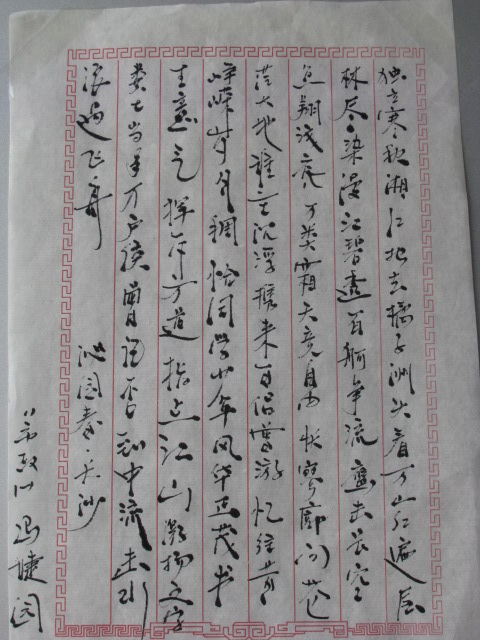 独立寒秋湘江北去橘子洲头看万山红遍层
林尽染漫江碧透百舸争流鹰击长空
鱼翔浅底万类霜天竞自由怅寥廓问苍
茫大地谁主沉浮携来百侣曾游忆往昔
峥嵘岁月稠恰同学少年风华正茂书
生意气挥斥方遒指点江山激扬文字
粪土当年万户侯曾记否到中流击水
浪遏飞舟
沁园春·长沙